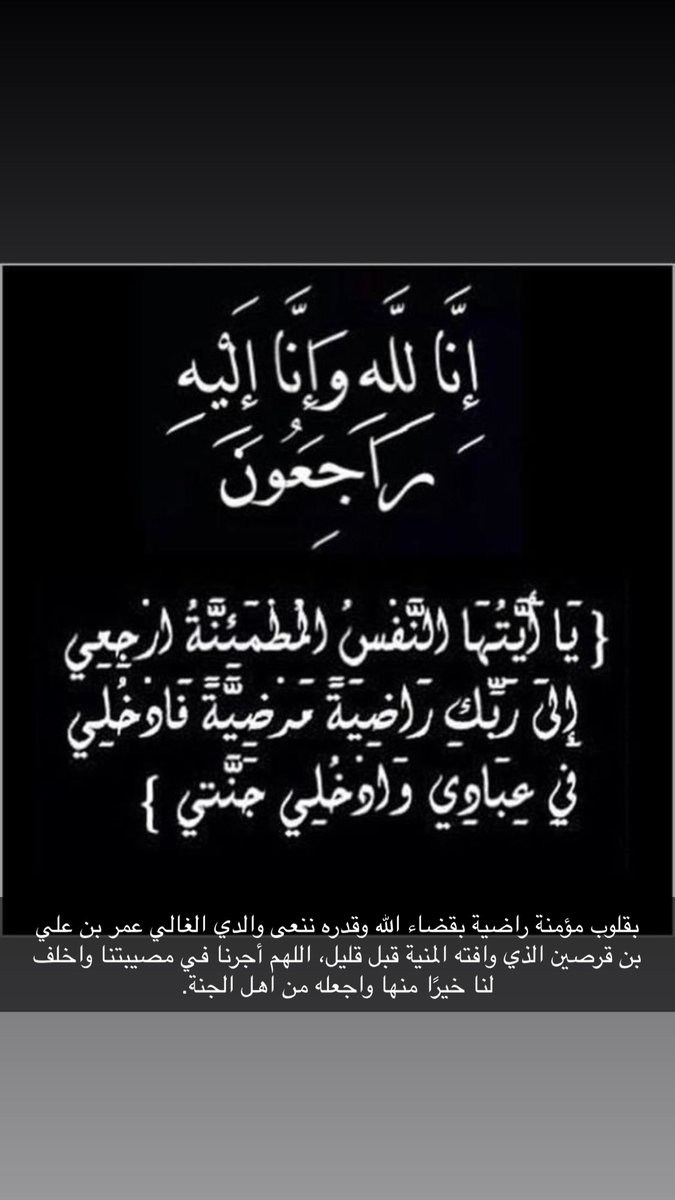 إِنَّا لِلَّهِ وَإِنَّا إِلَيْهِ
رَاجَعُونَ
{ يَا أَيَّتُهَا النَّفْسُ الْمُطْمَئِنَّةُ ارْجِعِي
إِلَى رَبِّكِ رَاضِيَةً مَرْضِيَّةً فَادْخُلِي
فِي عِبَادِي وَادْخُلِي جَنَّتي }
بقلوب مؤمنة راضية بقضاء الله وقدره ننعى والدي الغالي عمر بن علي
بن قرصين الذي وافته المنية قبل قليل، اللهم أجرنا في مصيبتنا واخلف
لنا خيرًا منها واجعله من اهل الجنة.